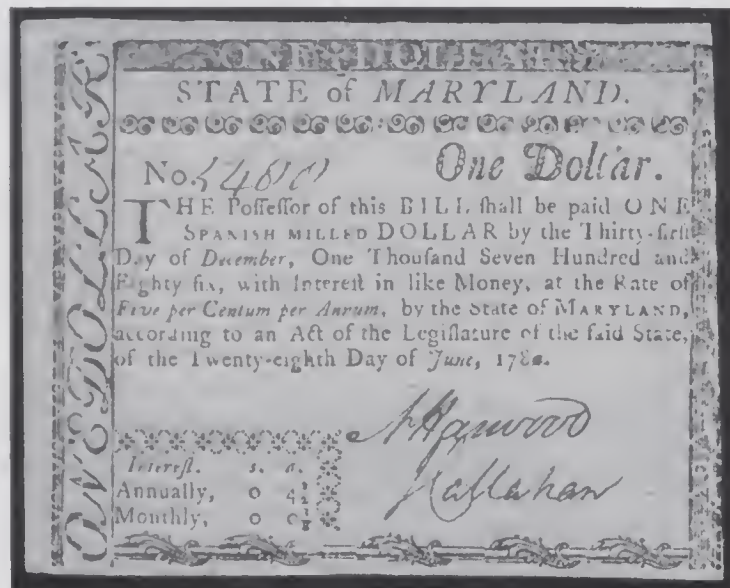 ONE DOLLAR
STATE of MARYLAND.
One Dollar.
No.
THE Poſſeſſor of this BILL ſhall be paid ONE
SPANISH MILLED DOLLAR by the Thirty-firſt
Day of December, One Thouſand Seven Hundred and
Eighty ſix, with Intereſt in like Money, at the Rate of
Five per Centum per Annum, by the State of MARYLAND,
according to an Act of the Legiſlature of the ſaid State,
of the Twenty-eighth Day of June, 1780.
Harwood
Callahan
Intereſt. s. d.
Annually, 0 4½
Monthly, 0 0⅜
ONE DOLLAR